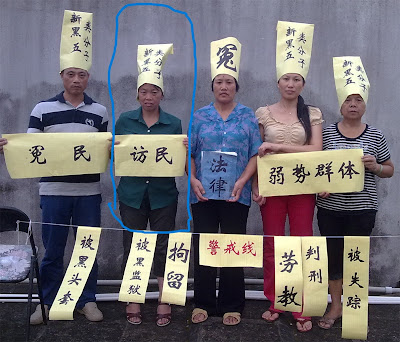 新黑五
类分子
新黑五
类分子
冤
新黑五
类分子
新黑五
类分子
冤民
访民
法律
弱势群体
被黑头套
被黑监狱
拘留
警戒线
劳教
判刑
被失踪